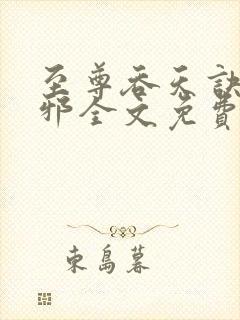 至尊吞天訣
邪全文免費
東島暮